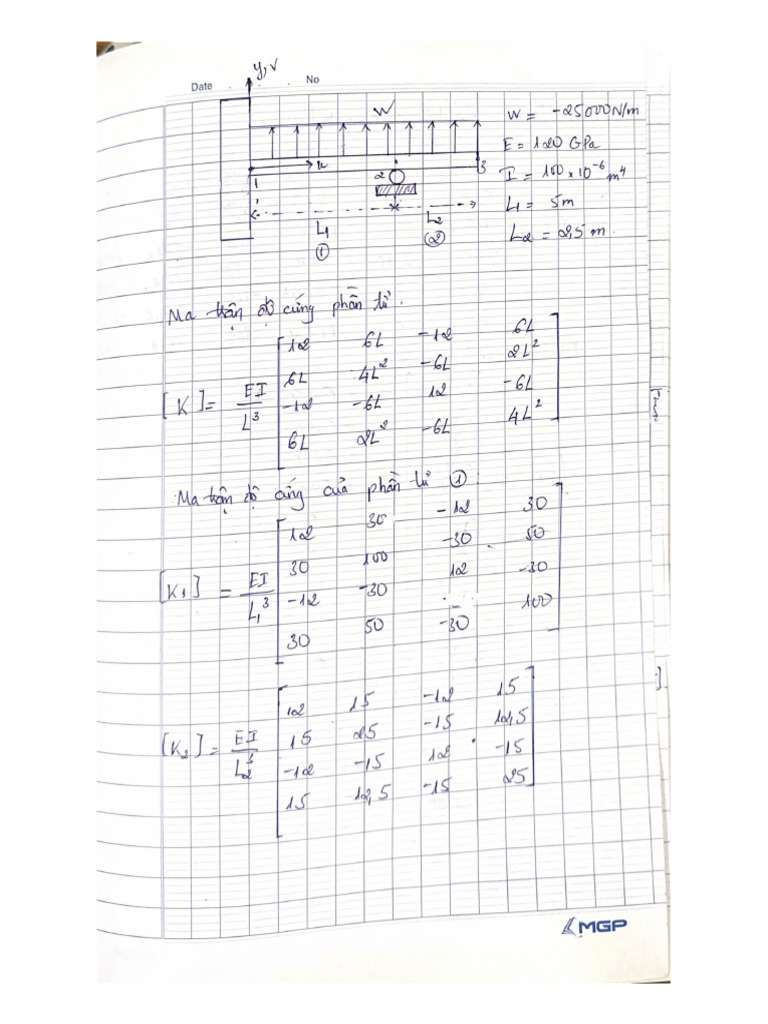 y,v
Date No
W
W = -25000N/m
E = 120 GPa
I = 100 × 10⁻⁶ m⁴
L₁ = 5m
L₂ = 2,5 m
x
1 2 3
L₁ L₂
① ②
Ma trận độ cứng phần tử.
[K] = EI/L³
12 6L -12 6L
6L 4L² -6L 2L²
-12 -6L 12 -6L
6L 2L² -6L 4L²
Ma trận độ cứng của phần tử ① :
[K₁] = EI/L₁³
12 30 -12 30
30 100 -30 50
-12 -30 12 -30
30 50 -30 100
[K₂] = EI/L₂³
12 15 -12 15
15 25 -15 12,5
-12 -15 12 -15
15 12,5 -15 25
MGP